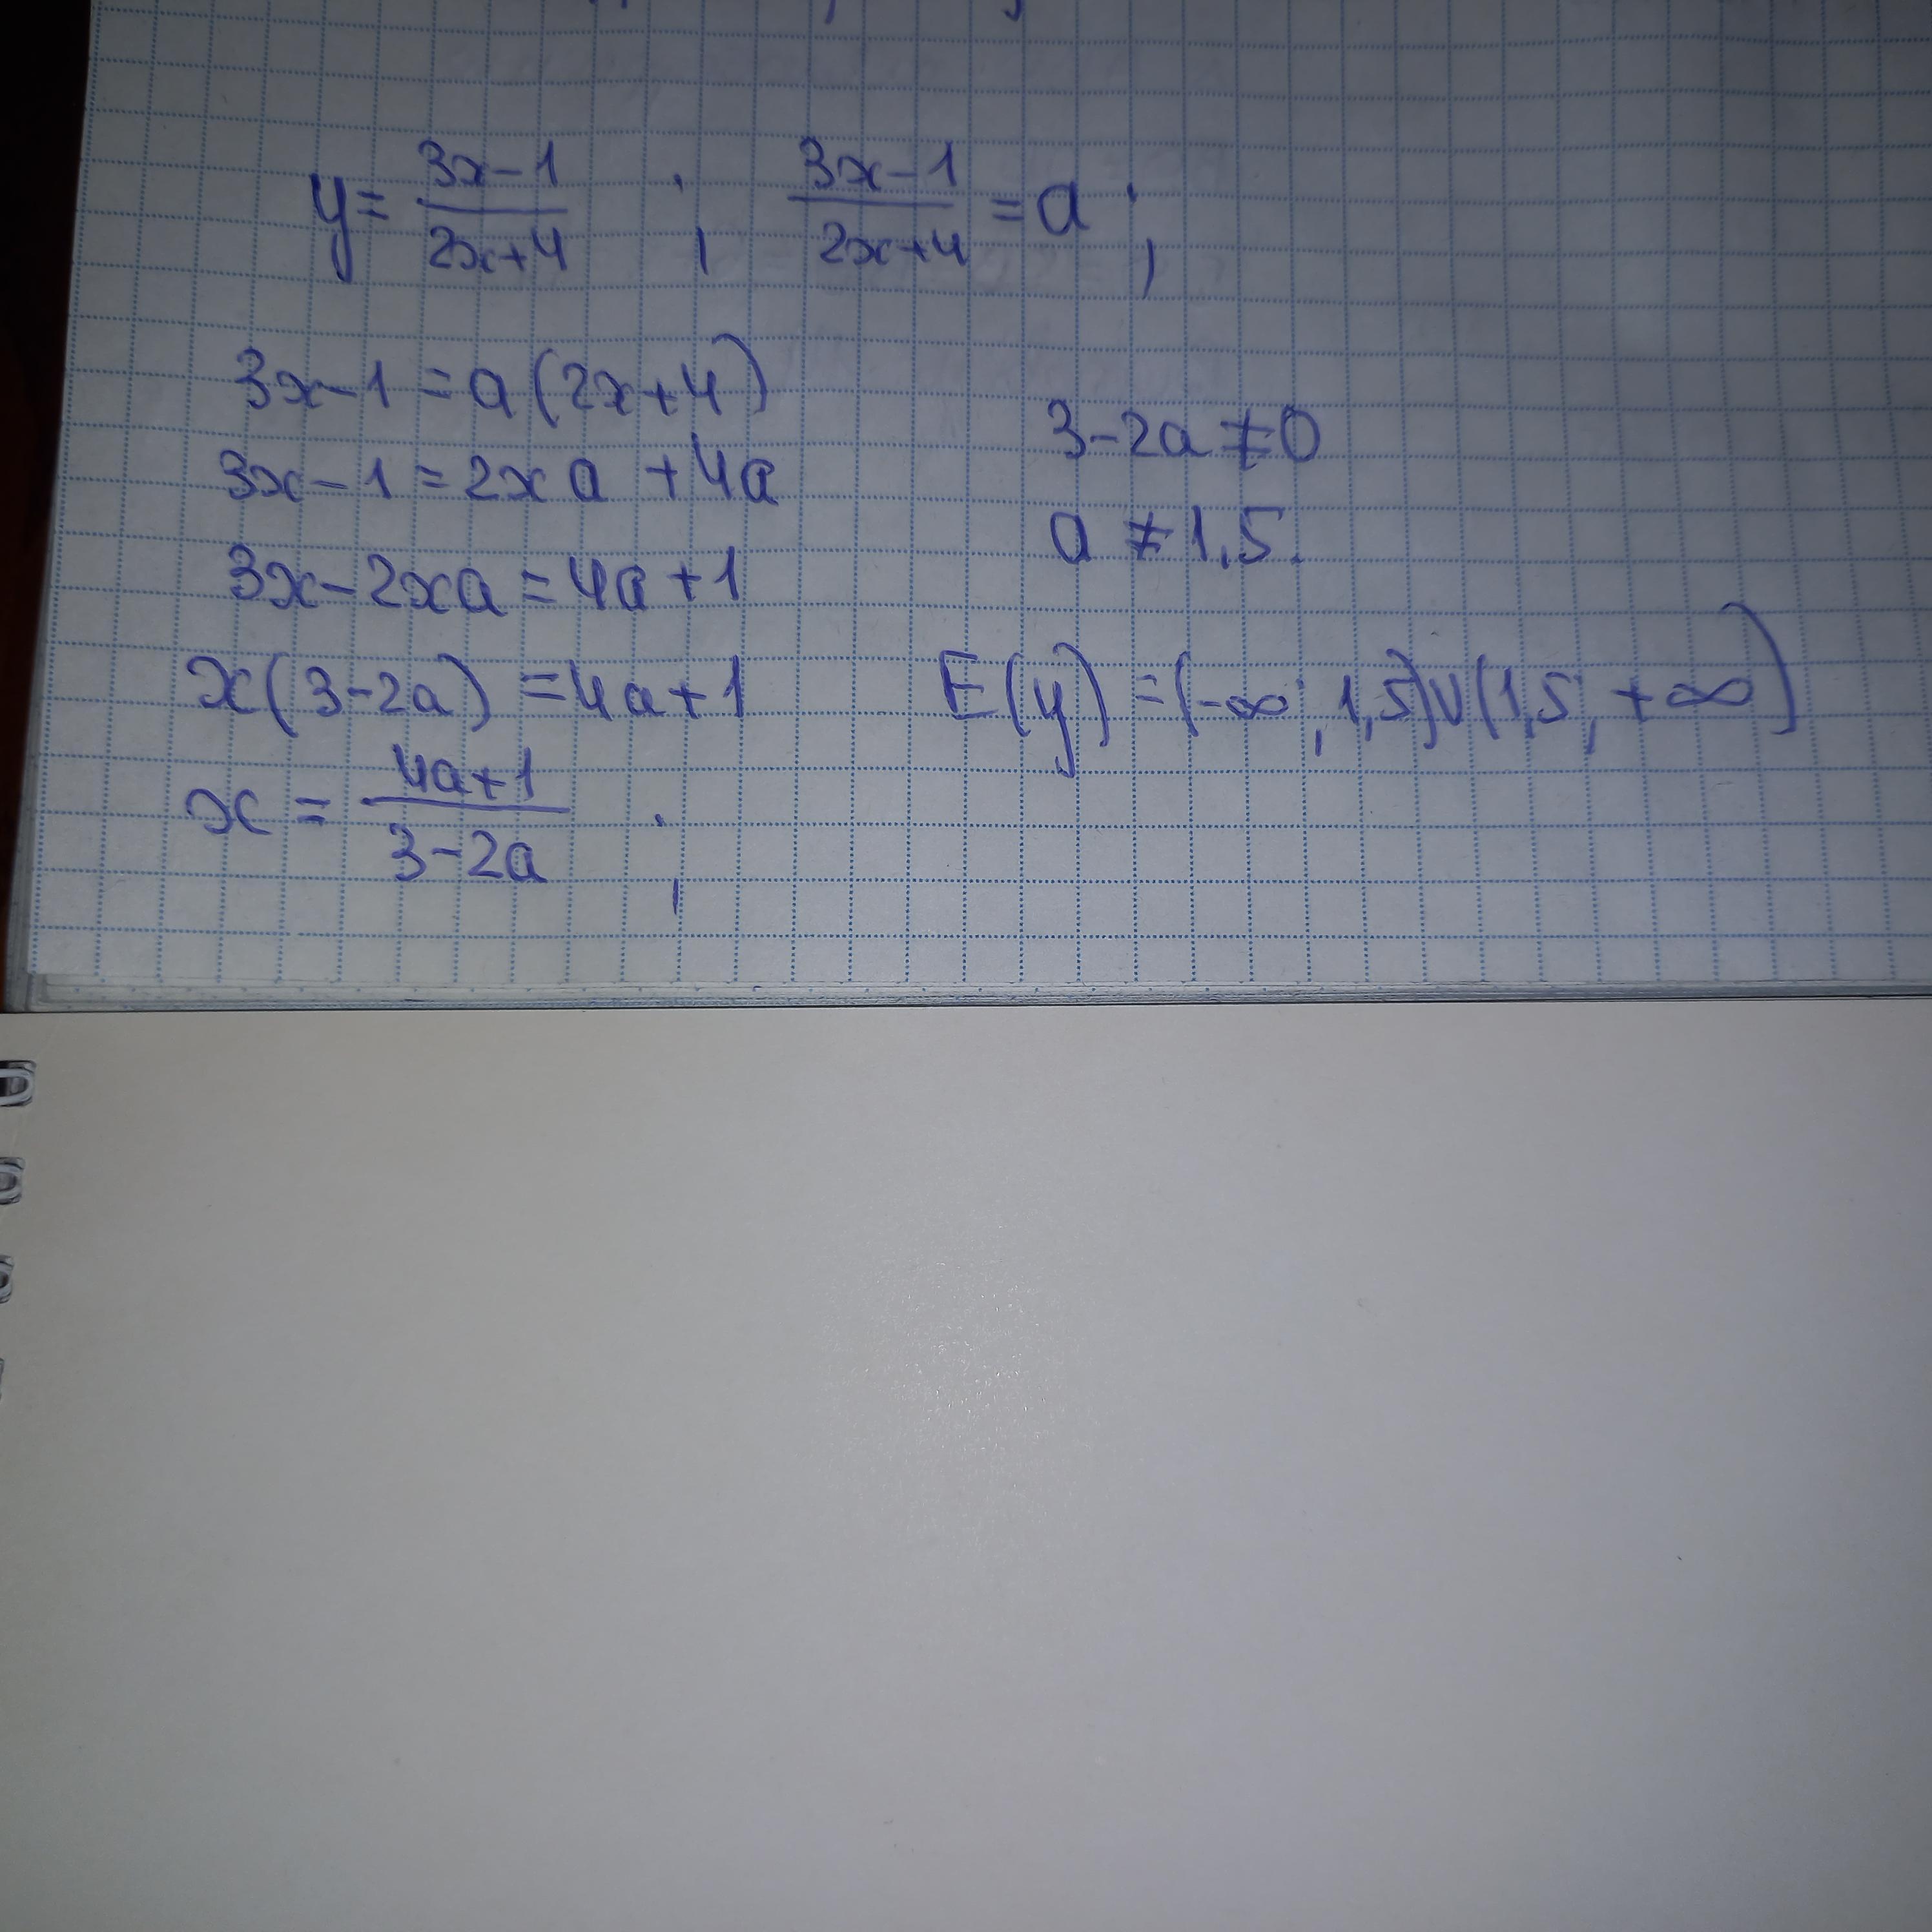 y = (3x-1)/(2x+4) ; (3x-1)/(2x+4) = a ;
3x-1 = a(2x+4)
3x-1 = 2xa + 4a
3x-2xa = 4a+1
x(3-2a) = 4a+1
x = (4a+1)/(3-2a) ;
3-2a ≠ 0
a ≠ 1,5.
E(y) = (-∞; 1,5)∪(1,5; +∞)